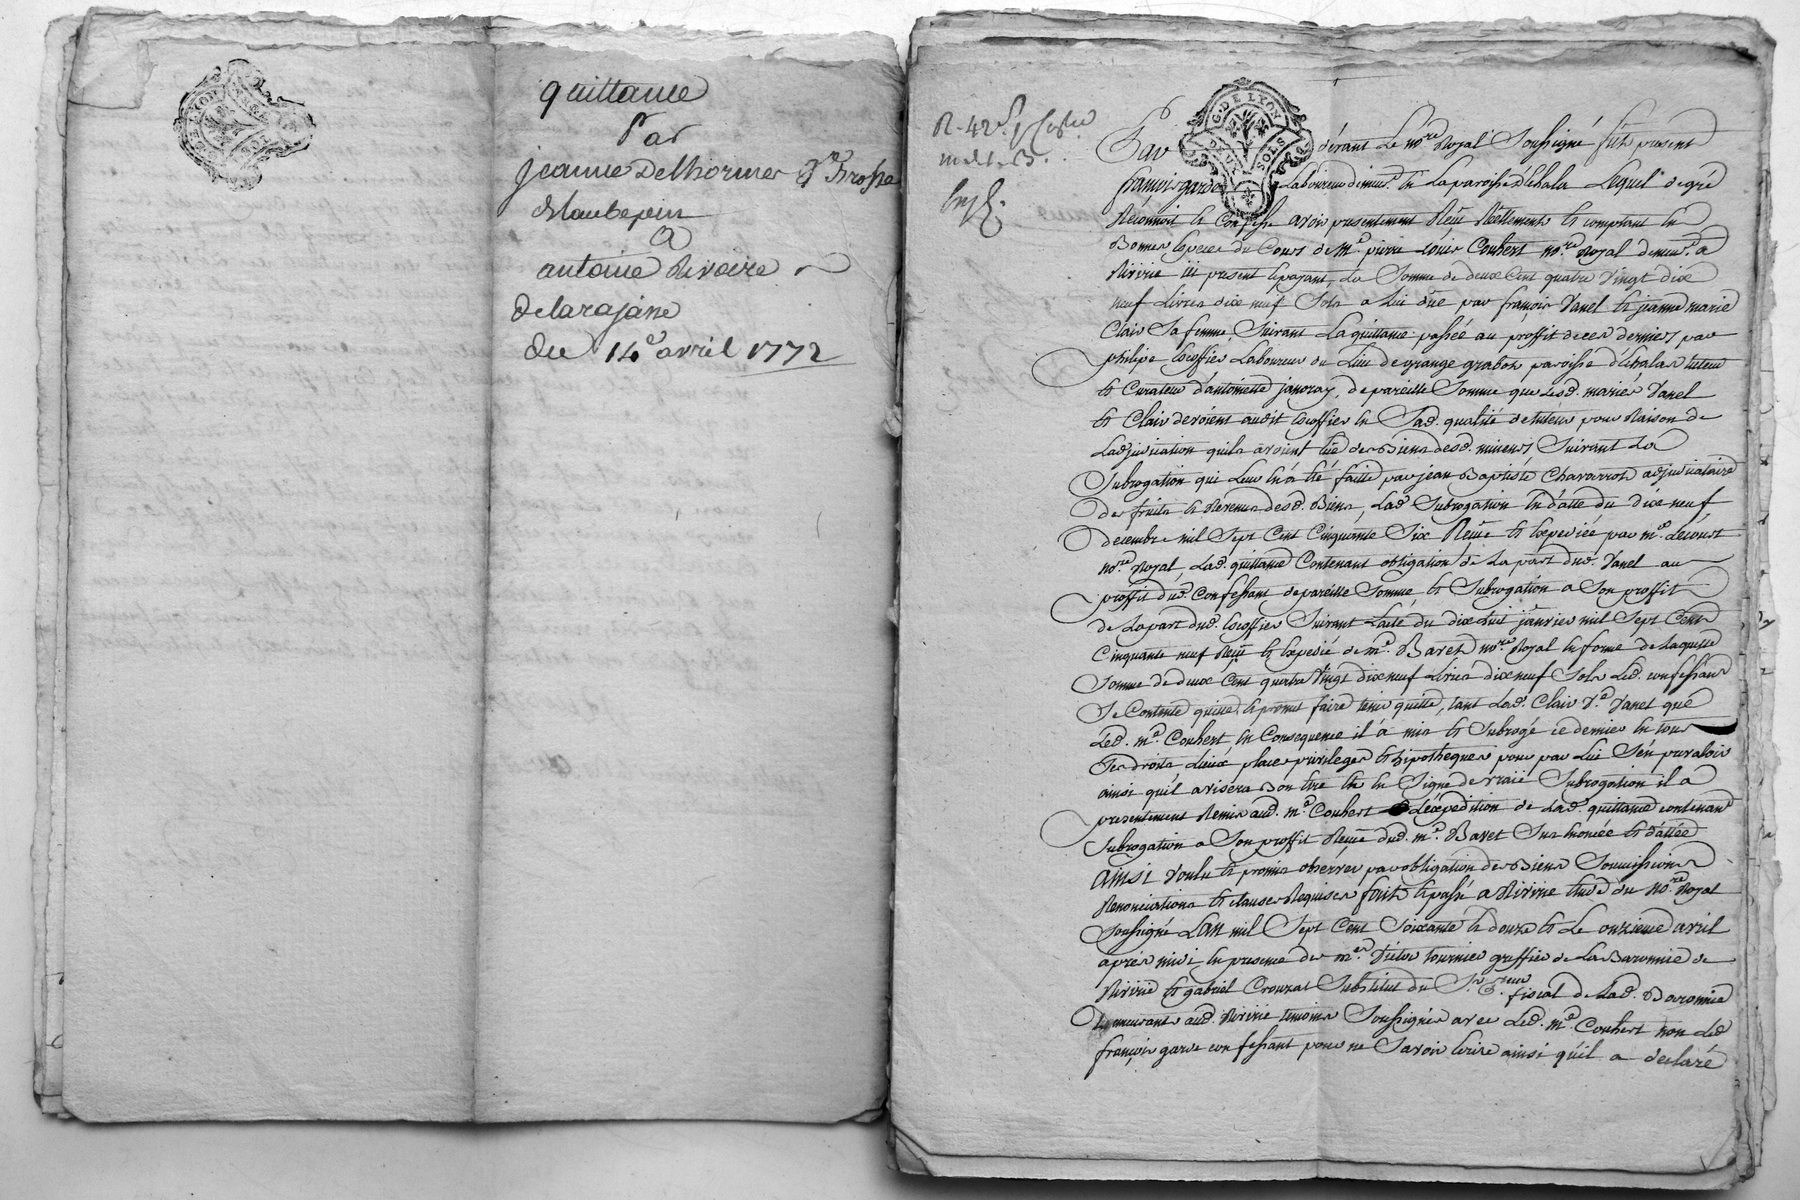 quittance
Par
jeanne Delhorme Ve Brosse
delaubepin
A
antoine Rivoire
delarajasse
du 14e avril 1772
G. DE LYON
DEUX SOLS
Pardevant Le nore Royal Soussigné fut present
françois garde Laboureur demeurt En La paroisse d'Echala Lequel de gré
Reconnoit Et Confesse avoir presentement Reçu Reellement Et comptant En
Bonnes Especes du Cours de Me pierre Louis Couhert nore Royal demeurt a
Riverie ici present Epayant, La Somme de deux Cent quatre Vingt dix
neuf Livres dix neuf Sols a Lui dûe par françois Vanel Et jeanne marie
Clair Sa femme, Suivant La quittance passée au proffit de ces derniers par
philipe Escoffier Laboureur du Lieu de grange paroisse d'Echalas tuteur
Et Curateur d'antoinette janoray, de pareille Somme que Lesd. mariés Vanel
Et Clair devoient audit Escoffier En Sad. qualité de tuteur pour Raison de
Ladjudication quils avoient Eüe des Biens desd. mineurs Suivant La
Subrogation qui Leur En a Eté faitte par jean Baptiste Chavarrot adjudicataire
des fruits Et Revenus desd. Biens, Lad. Subrogation En datte du dix neuf
decembre mil Sept Cent Cinquante Six Reçue Et Expediée par me Lecourt
nore Royal Lad. quittance Contenant obligation de La part dud. Vanel au
proffit dud. Confessant de pareille Somme Et Subrogation a Son proffit
de La part dud. Escoffier Suivant Lacte du dix huit janvier mil Sept Cent
Cinquante neuf Reçu Et Expedié de me Baret nore Royal En forme de Laquelle
Somme de deux Cent quatre Vingt dix neuf Livres dix neuf Sols Led. confessant
Se Contente quitte Et promet faire tenir quitte, tant Lad. Clair Ve Vanel que
Led. me Couhert En Consequence il á mis Et Subrogé ce dernier En tous
Ses droits Lieux places privileges Et hipotheques pour par Lui S'en prevaloir
ainsi qu'il avisera Bon Etre Et En Signe de Vraie Subrogation il a
presentement Remis aud. me Couhert L'éxpedition de Lad. quittance contenant
Subrogation a Son proffit Reçue dud. me Baret Sus Enoncée Et dattée
AINSI Voulu Et promis observer par obligation de Biens Soumissions
Renonciations Et clauses Requises fait Et passé a Riverie Etude du Nore Royal
Soussigné Lan mil Sept Cent Soixante Et douze Et Le onzieme avril
aprés midi En presence de mes Victor tournier greffier de La Baronnie de
Riverie Et gabriel Crouzat Substitut du Sr Preur fiscal de Lad. Baronnie
Demeurants aud. Riverie temoins Soussignés avec Led. me Couhert non Led
françois garde confessant pour ne Savoir Ecrire ainsi qu'il a declaré